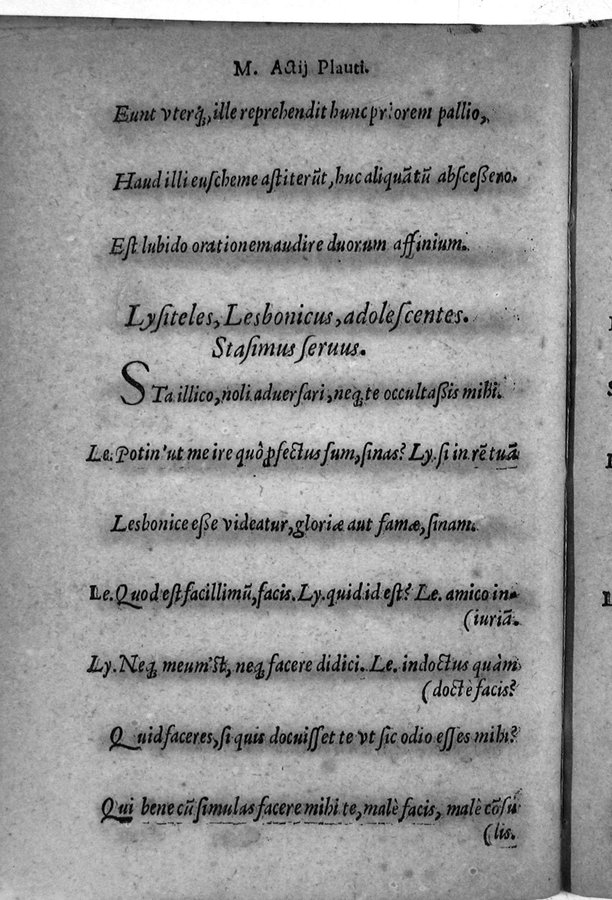 M. Actij Plauti.
Eunt vterq́;, ille reprehendit hunc priorem pallio,
Haud illi euscheme astiterūt, huc aliquātū abscessero.
Est lubido orationem audire duorum affinium.
Lysiteles, Lesbonicus, adolescentes.
Stasimus seruus.
STa illico, noli aduersari, neq; te occultassis mihi.
Le. Potin' ut me ire quò ꝓfectus sum, sinas? Ly. si in rē tuā
Lesbonice esse videatur, gloriæ aut famæ, sinam.
Le. Quod est facillimū, facis. Ly. quid id est? Le. amico in-
(iuriā.
Ly. Neq; meum'st, neq; facere didici. Le. indoctus quàm
(doctè facis?
Quid faceres, si quis docuisset te vt sic odio esses mihi?
Qui bene cū simulas facere mihi te, malè facis, malè cōsu
(lis.